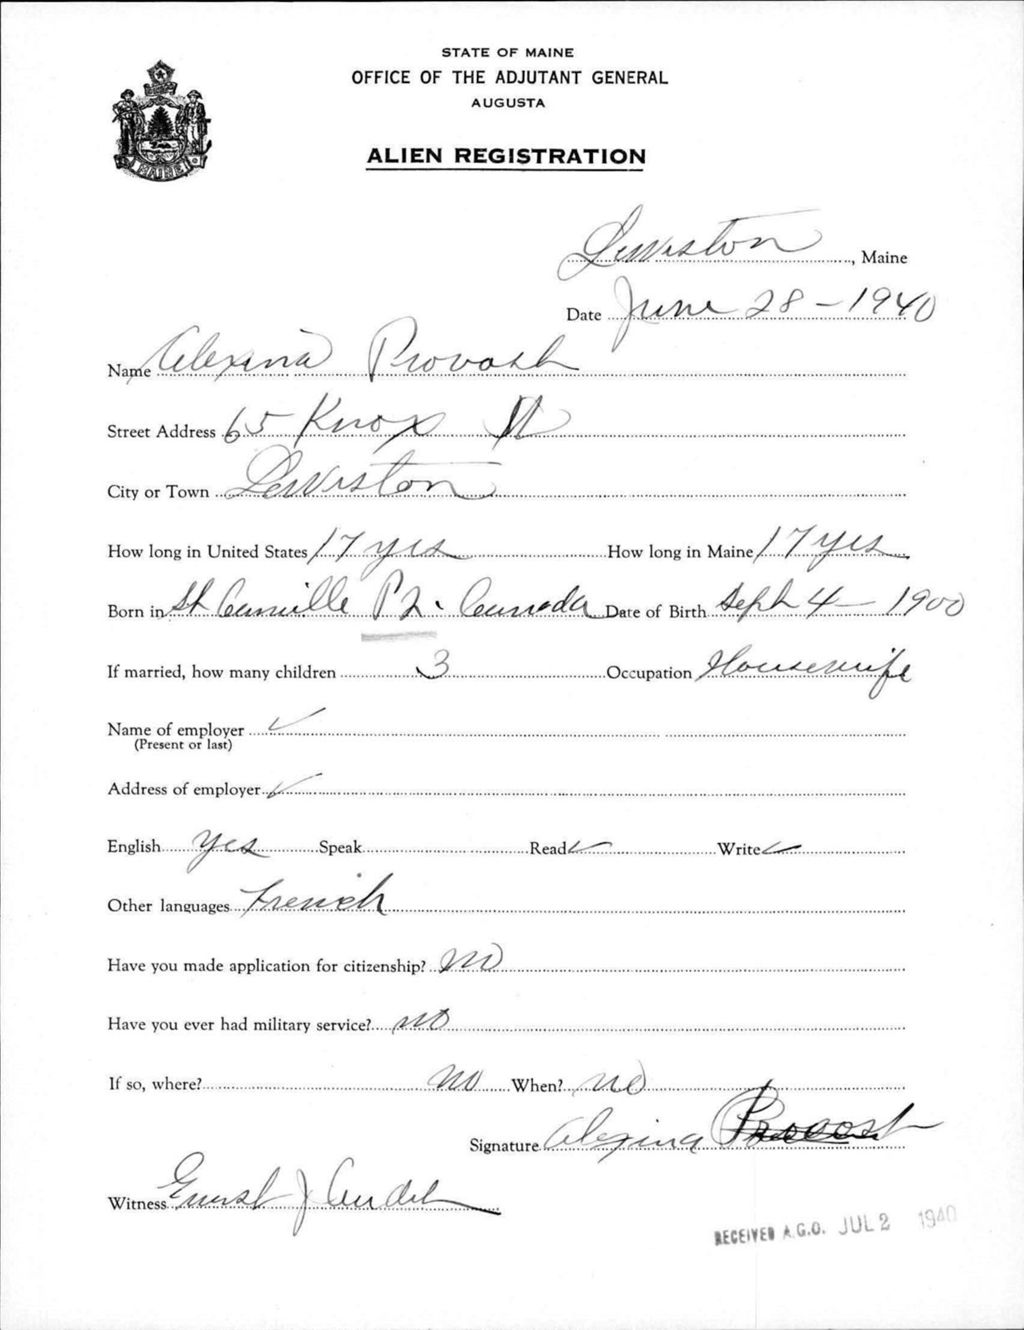 STATE OF MAINE
OFFICE OF THE ADJUTANT GENERAL
AUGUSTA
ALIEN REGISTRATION
MAINE
Lewiston, Maine
Date June 28 - 1940
Name Alexina Provost
Street Address 65 Knox St
City or Town Lewiston
How long in United States 17 yrs How long in Maine 17 yrs
Born in St Camille P Q. Canada Date of Birth Sept 4 - 1900
If married, how many children 3 Occupation Housewife
Name of employer ✓
(Present or last)
Address of employer ✓
English Yes Speak Read ✓ Write ✓
Other languages French
Have you made application for citizenship? No
Have you ever had military service? no
If so, where? no When? no
Signature Alexina Provost
Witness Ernest J
RECEIVED A.G.O. JUL 2 1940